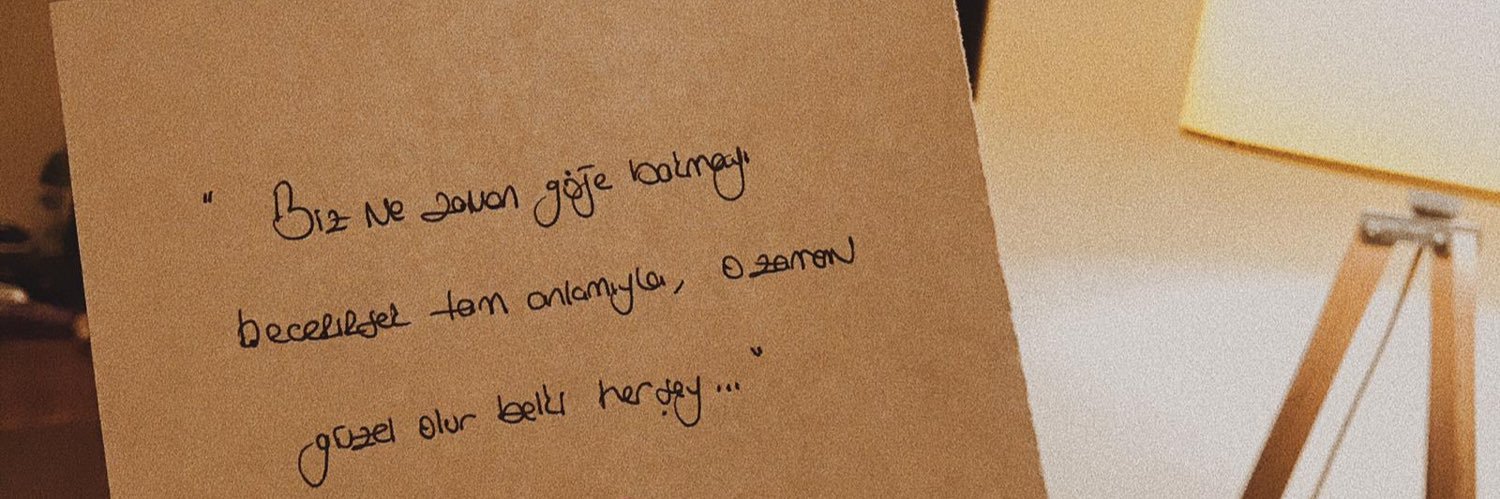 " Biz Ne zaman göğe bakmayı
becerirsek tam anlamıyla, o zaman
güzel olur belki herşey... "